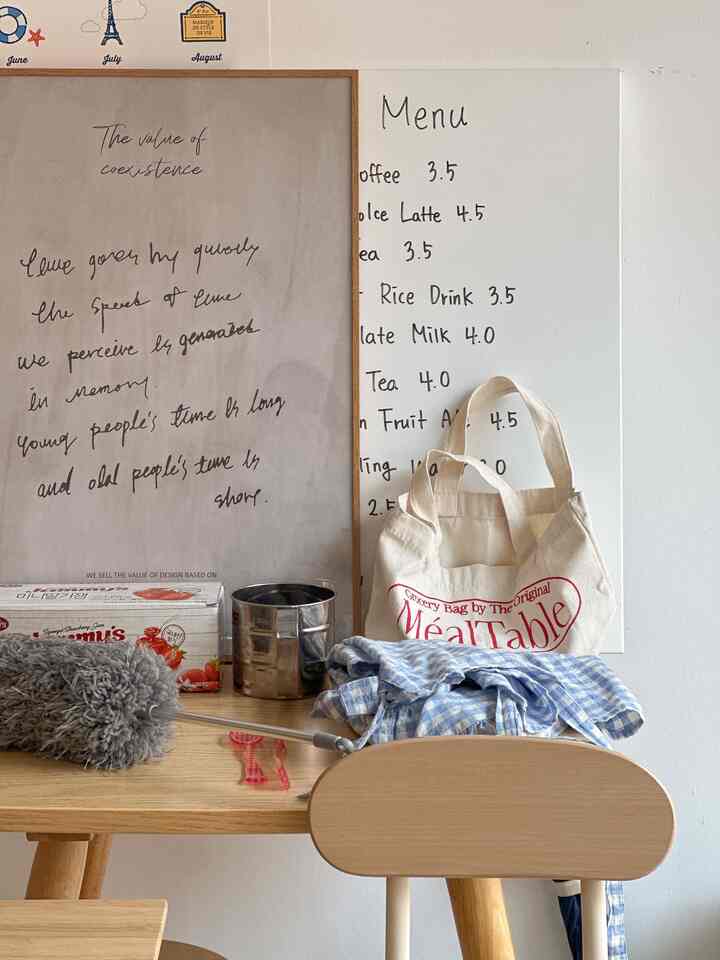 June
July
August
The value of
coexistence
time goes by quickly
the speed of time
we perceive is generated
in memory.
young people's time is long
and old people's time is
short.
WE SELL THE VALUE OF DESIGN BASED ON
Menu
offee 3.5
olce Latte 4.5
ea 3.5
Rice Drink 3.5
late Milk 4.0
Tea 4.0
n Fruit A 4.5
ling Wa 3.0
2.5
Grocery Bag by The Original
MéalTable